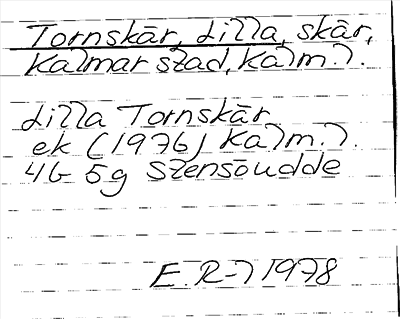 Tornskär, Lilla, skär,
Kalmar stad, Kalm. l.
Lilla Tornskär
ek (1976) Kalm. l.
4G 5g Stensöudde
E. R-l 1978